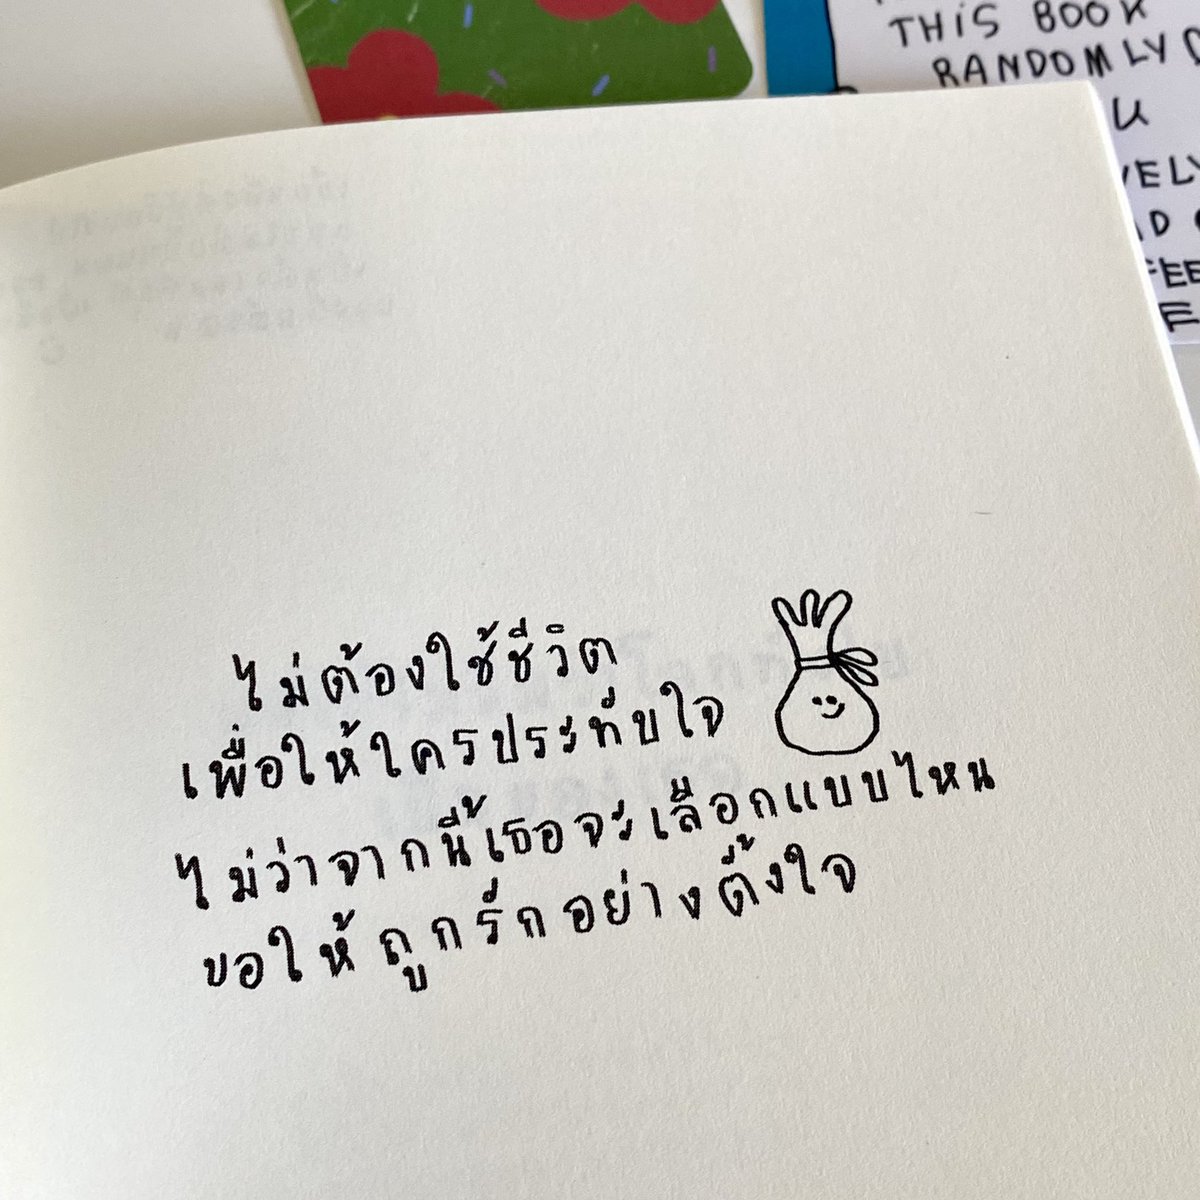 THIS BOOK
RANDOMLY
ไม่ต้องใช้ชีวิต
เพื่อให้ใครประทับใจ
ไม่ว่าจากนี้เธอจะเลือกแบบไหน
ขอให้ถูกรักอย่างตั้งใจ